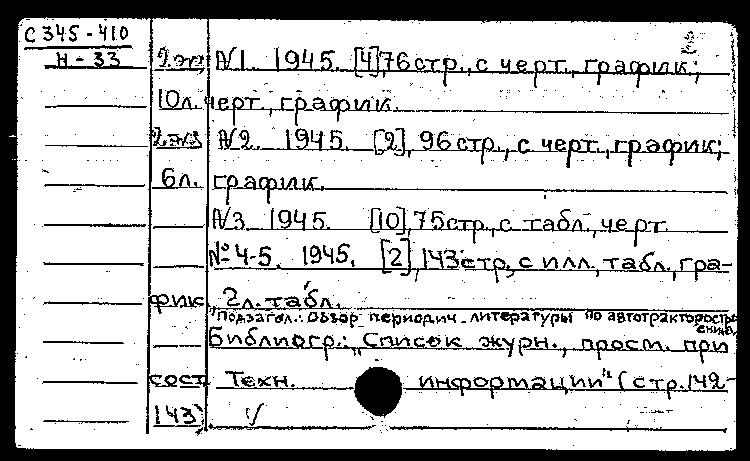 С 345-410
Н-33
2 экз №1. 1945. [4], 76 стр., с черт., график.;
10 л. черт., график.
2 экз №2. 1945. [2], 96 стр., с черт., график.;
6 л. график.
№3 1945. [10], 75 стр., с табл., черт
№ 4-5. 1945. [2], 143 стр., с илл., табл., гра-
фик., 2 л. табл.
Подзагол.: Обзор периодич. литературы по автотракторостро
ению.
Библиогр.: „Список журн., просм. при
сост. Техн. информации" (стр. 142-
143)